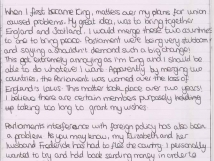 When I first became King, matters over my plans for union
caused problems. My great idea, was to bring together
England and Scotland. I would merge these two countries
to try to bring peace. Parliament were being very stubborn
and saying I shouldn't demand such a big change.
This got extremely annoying as I'm King and I should be
able to do whatever I want. Apparently by merging our
countries, the Parliament was worried over the loss of
England's laws. This matter took place over two years!
I believe there are certain members purposely holding
up taking too long to grant my wishes.
Parliament's interference with foreign policy has also been
a problem. As you may know, my Elizabeth and her
husband Frederick has had to flee the country. I wanted
to try and hold back sending money in order to